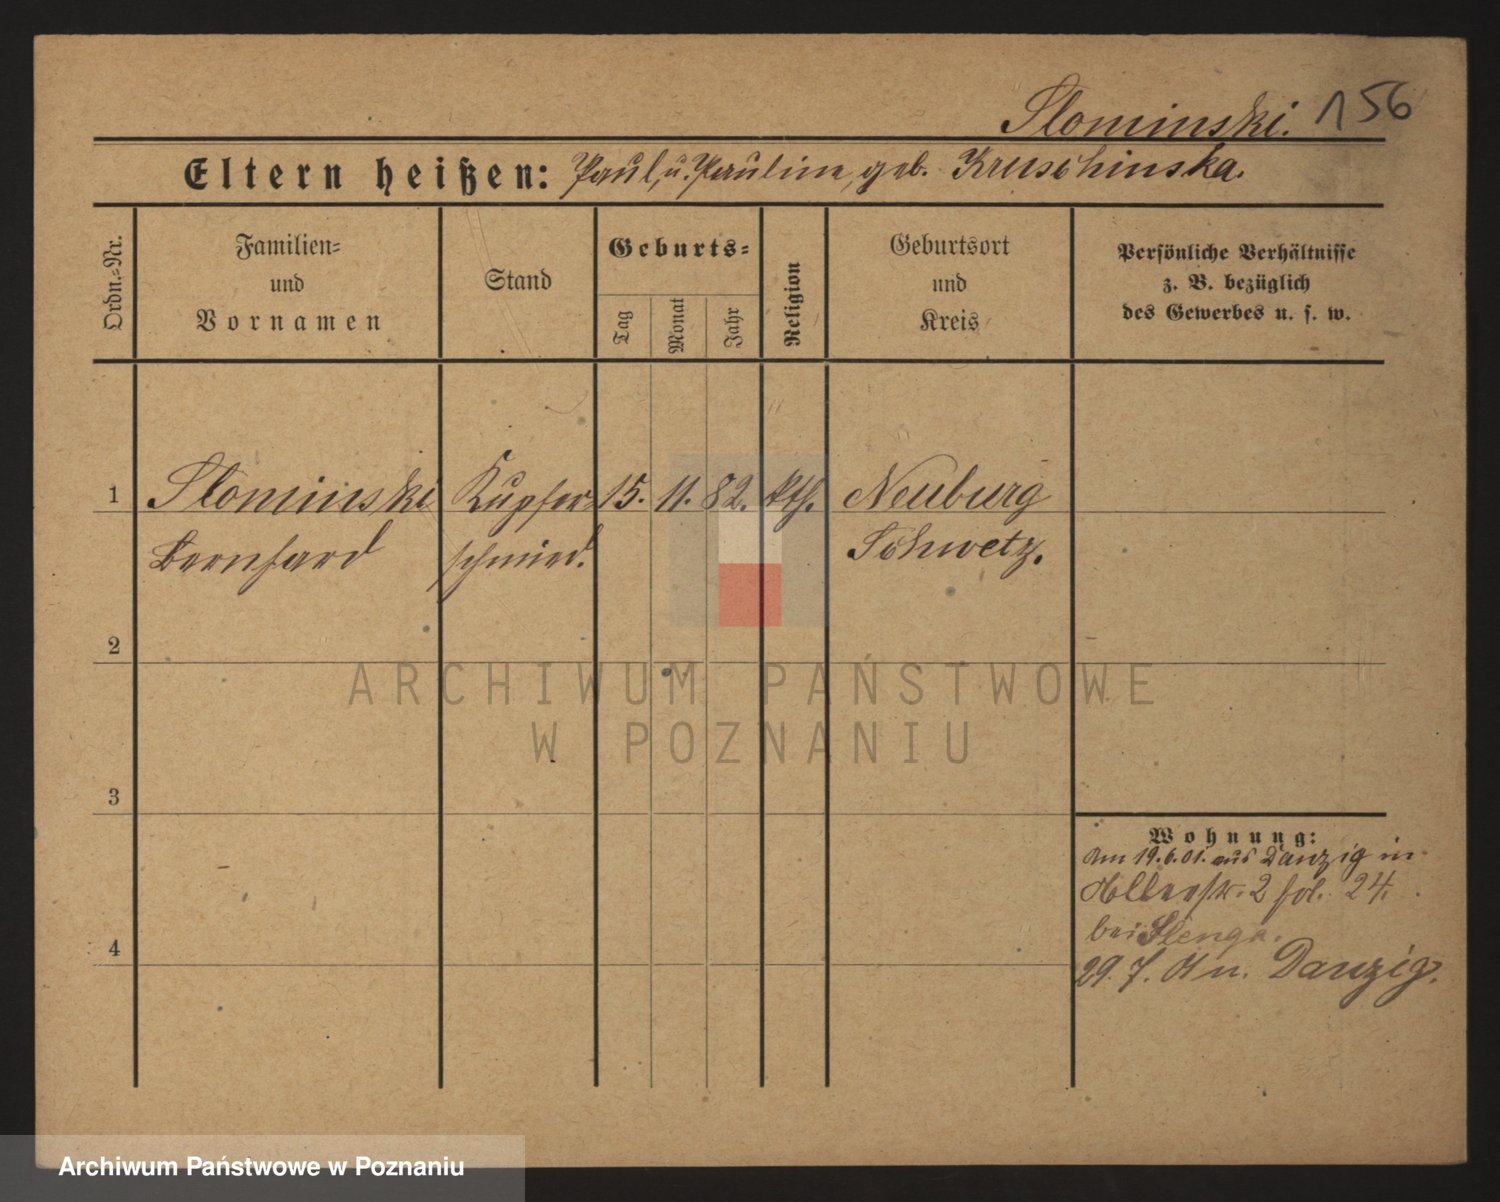 Slominski. 156
Eltern heißen: Paul, u. Pauline, geb. Kruschinska.
Ordn.-Nr.
Familien-
und
Vornamen
Stand
Geburts-
Tag
Monat
Jahr
Religion
Geburtsort
und
Kreis
Persönliche Verhältnisse
z. B. bezüglich
des Gewerbes u. s. w.
1 Slominski Kupfer- 15. 11. 82. kth. Neuburg
Bernhard schmied. Schwetz.
2
3
4
Wohnung:
Am 19.6.01. aus Danzig in
2 24.
bei Slenga.
29. 7. Danzig.
ARCHIWUM PAŃSTWOWE
W POZNANIU
Archiwum Państwowe w Poznaniu